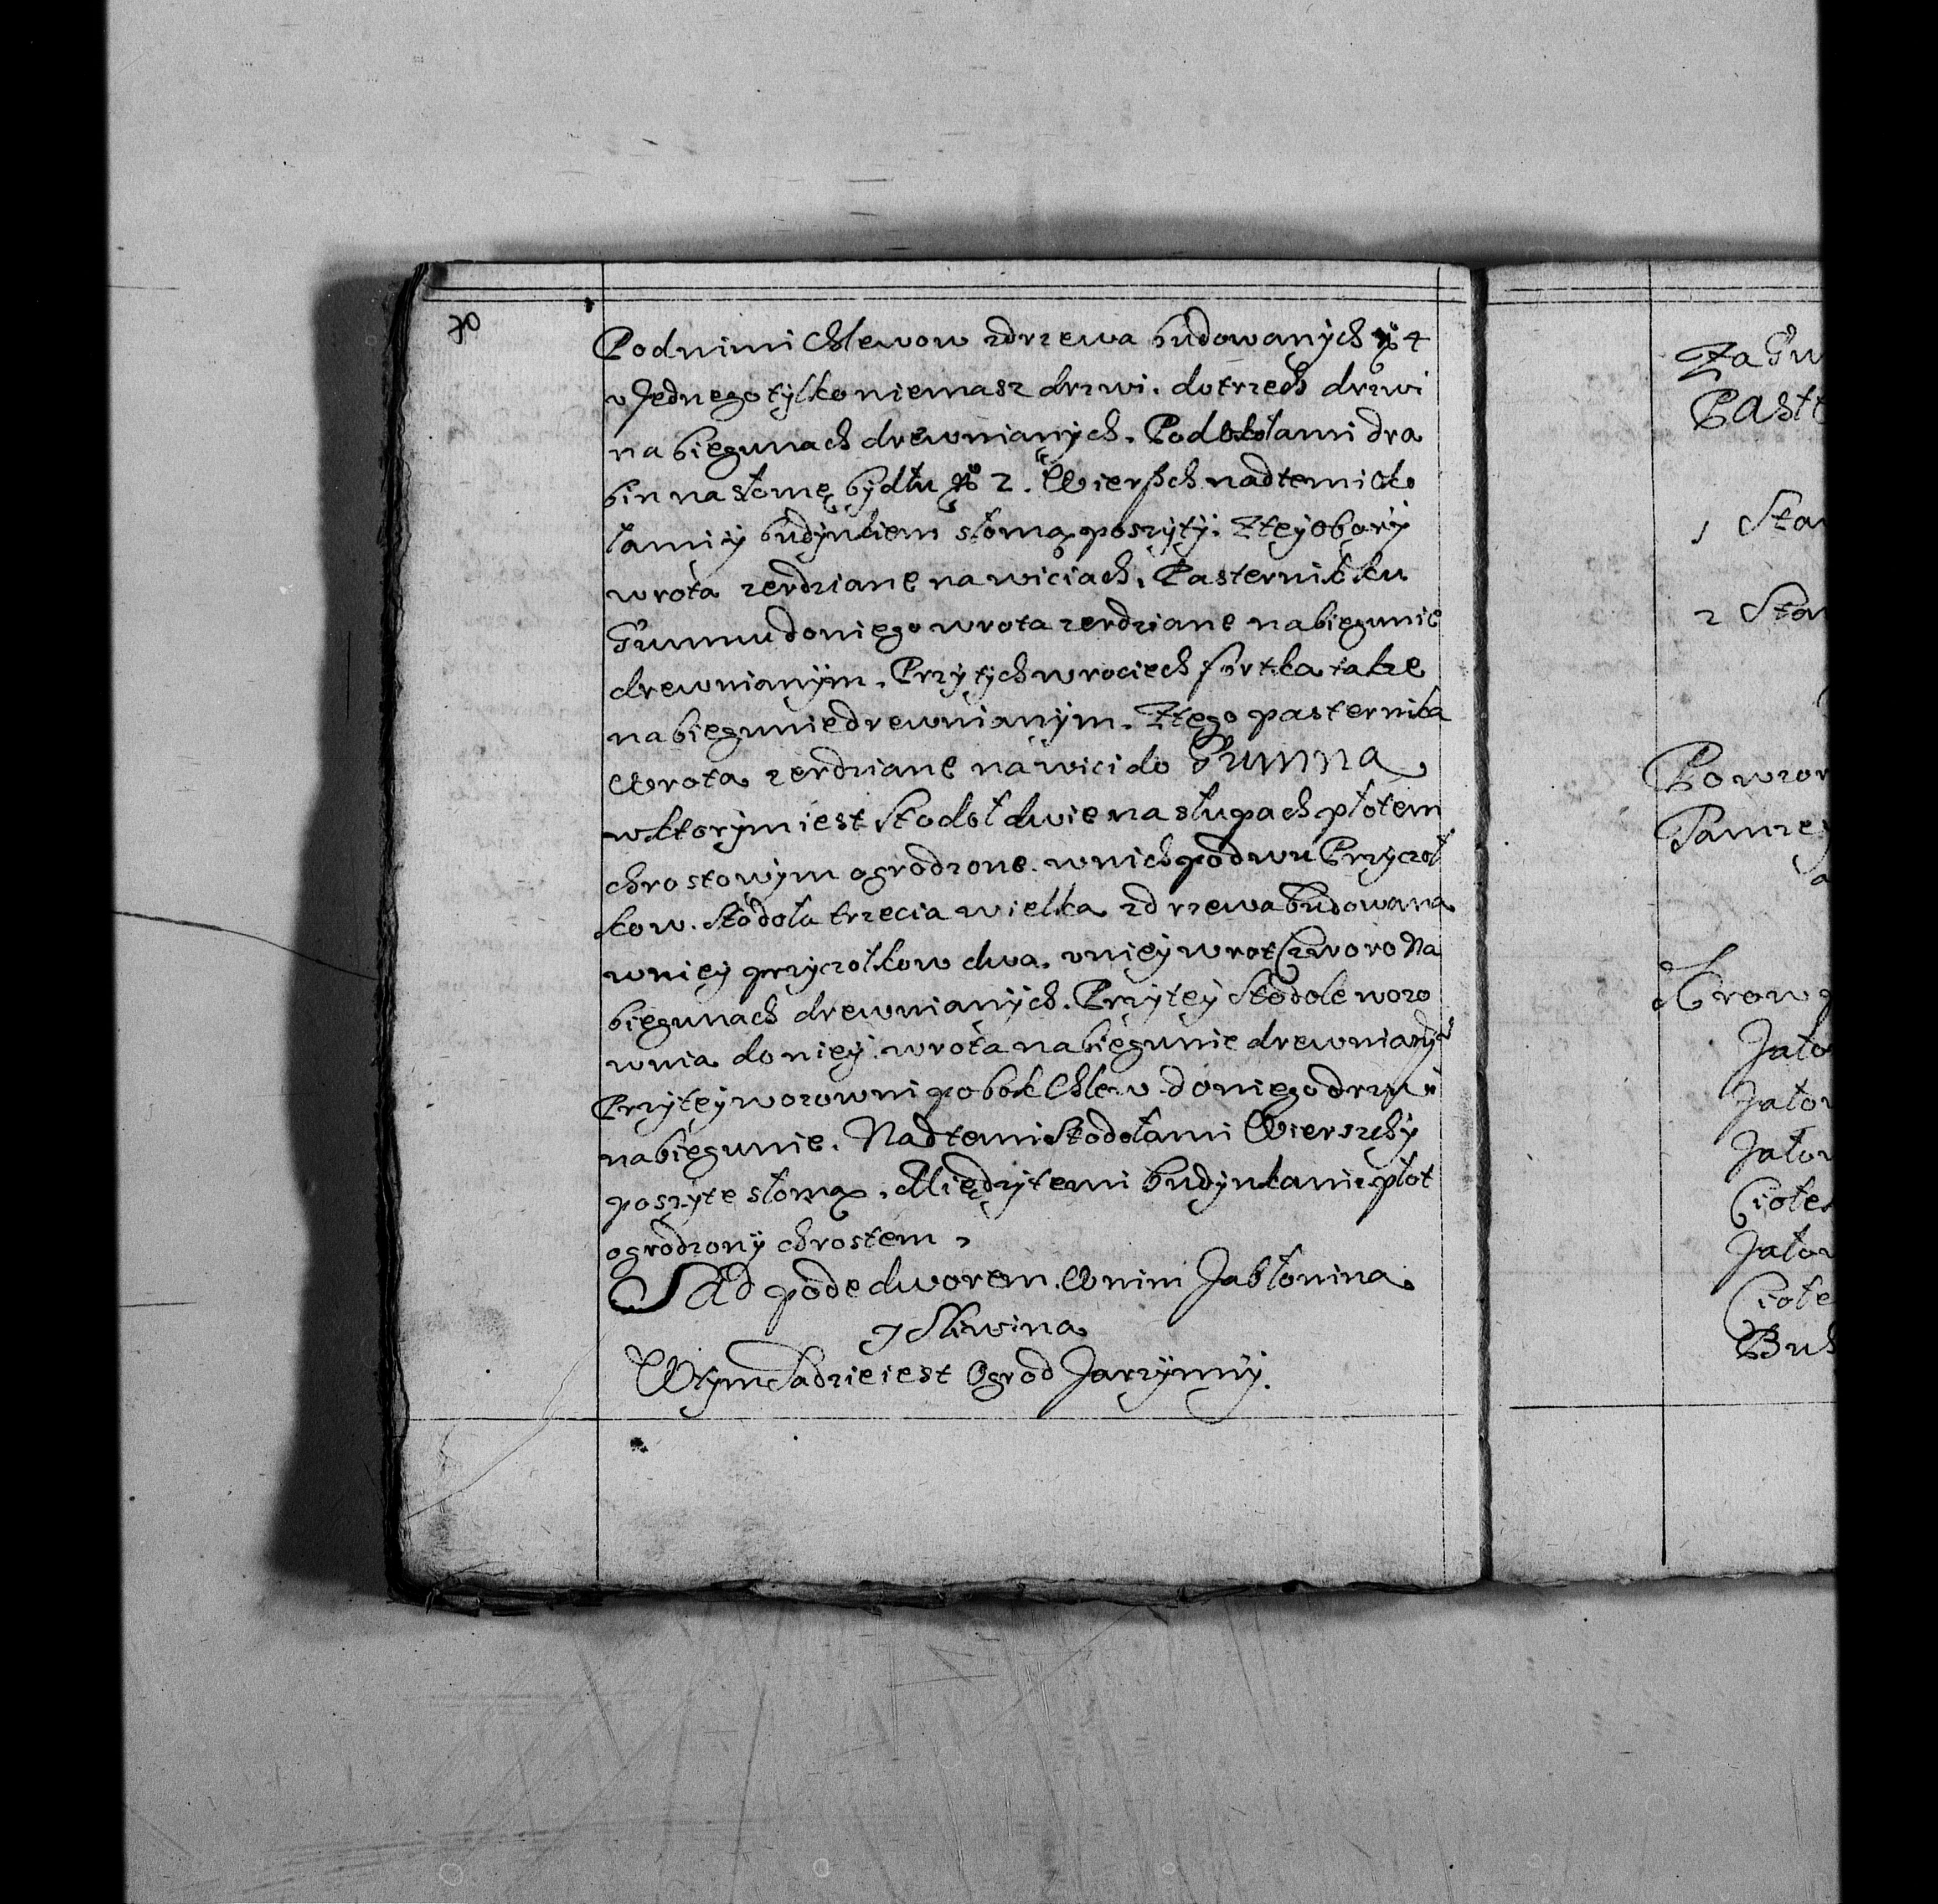 70
Podnimi Chlewow zdrzewa budowanÿch No 4
v Jednego tÿlko niemasz drzwi. do trzech drzwi
na biegunach drewnianÿch. Pod Okołami dra
bin na słomę bÿdłu No 2. Wierſzch nad temi Oko
łami ÿ budÿnkiem słomą poszÿtÿ. Z teÿ oborÿ
wrota zerdziane na wiciach. Pasternik ku
Gumnu do niego wrota zerdziane na biegunie
drewnianÿm. Przÿ tÿch wrociech fortka takze
na biegunie drewnianÿm. Z tego pasternika
Wrota zerdziane na wici do Gumna
w ktorÿm iest Stodoł dwie na słupach płotem
chrostowÿm ogrodzone. w nich po dwu Przÿczoł
kow. Stodoła trzecia wielka z drzewa budowana
w nieÿ przÿczołkow dwa. v nieÿ wrot Czworo Na
biegunach drewnianÿch. Przÿ teÿ Stodole wozo
wnia do nieÿ wrota na biegunie drewnianÿ
Przÿ teÿ wozowni pobok Chlew do niego drzwi
na biegunie. Nad temi Stodołami Wierszchÿ
poszÿte słomą. Międzÿ temi budÿnkami płot
ogrodzonÿ chrostem,
SAd pode dworem. W nim Jabłonina
ÿ Sliwina
W tÿm Sadzie iest Ogrod Jarzÿnnÿ.
Za Gu
Past
1 Sta
2 Sta
Powzor
Krow
Jało
Jałow
Jałow
Ciołe
Jałow
Ciołe